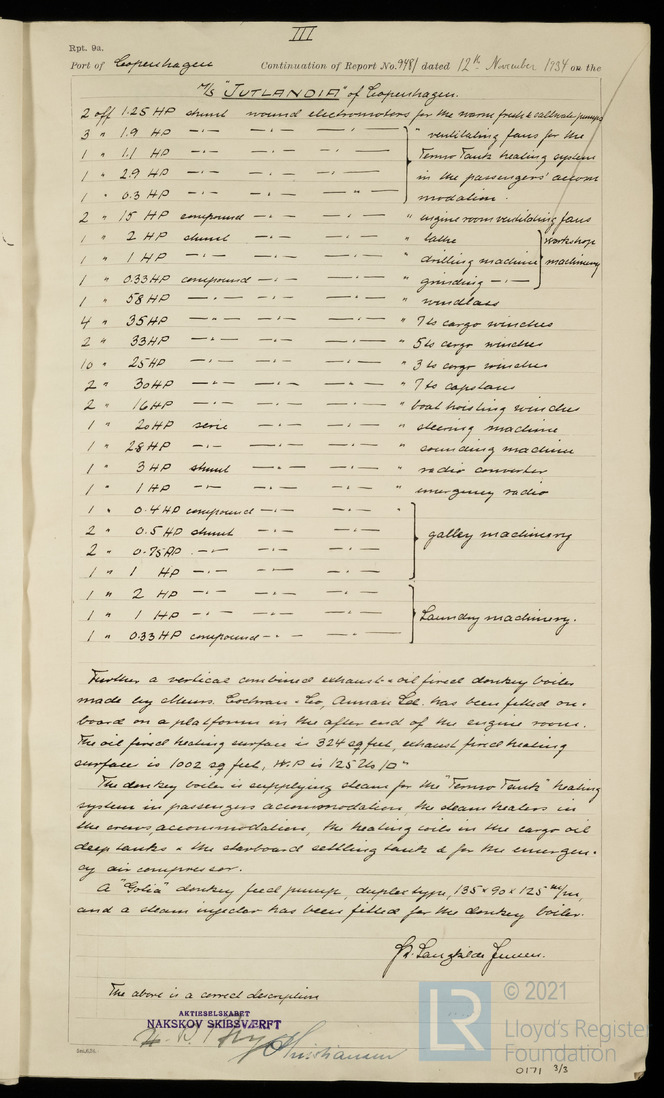 III
Rpt. 9a.
Port of Copenhagen Continuation of Report No. 9481 dated 12th November 1934 on the
M/s "JUTLANDIA" of Copenhagen.
2 off 1.25 HP shunt wound electromotors for the warm fresh & saltwater pumps
3 " 1.9 HP —·— — · — — · — " ventilating fans for the
1 " 1.1 HP —·— — · — — · — Termo Tank heating system
1 " 2.9 HP —·— — · — — · — in the passengers' accom
1 " 0.3 HP —·— — · — — " — modation.
2 " 15 HP compound —·— — · — " engine room ventilating fans
1 " 2 HP shunt —·— — · — " lathe workshop
1 " 1 HP —·— —·— — · — " drilling machine machinery
1 " 0.33 HP compound —·— — · — " grinding —·—
1 " 58 HP —·— —·— — · — " windlass
4 " 35 HP —·— —·— — · — " 7 ts cargo winches
2 " 33 HP —·— —·— — · — " 5 ts cargo winches
10 " 25 HP —·— —·— — · — " 3 ts cargo winches
2 " 30 HP —·— —·— — · — " 7 ts capstans
2 " 16 HP —·— —·— — · — " boat hoisting winches
1 " 20 HP serie —·— — · — " steering machine
1 " 28 HP —·— —·— — · — " sounding machine
1 " 3 HP shunt —·— — · — " radio converter
1 " 1 HP —·— —·— — · — " emergency radio
1 " 0.4 HP compound —·— — · — "
2 " 0.5 HP shunt —·— — · — galley machinery
2 " 0.75 HP —·— —·— — · —
1 " 1 HP —·— —·— — · —
1 " 2 HP —·— —·— — · —
1 " 1 HP —·— —·— — · — Laundry machinery.
1 " 0.33 HP compound —·— — · —
Further a vertical combined exhaust & oil fired donkey boiler
made by Messrs. Cochran & Co, Annan Ltd. has been fitted on-
board on a platform in the after end of the engine room.
The oil fired heating surface is 324 sq feet, exhaust fired heating
surface is 1002 sq feet, W.P. is 125 lbs/□"
The donkey boiler is supplying steam for the "Termo Tank" heating
system in passengers accomodation, the steam heaters in
the crews, accommodation, the heating coils in the cargo oil
deep tanks & the starboard settling tank & for the emergen-
cy air compressor.
A "Golia" donkey feed pump, duplex type, 135 × 90 × 125 m/m,
and a steam injector has been fitted for the donkey boiler.
Langkilde Jensen.
The above is a correct description
AKTIESELSKABET
NAKSKOV SKIBSVÆRFT
Christiansen
LR
© 2021
Lloyd's Register
Foundation
0171 3/3